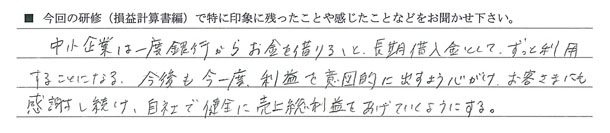 ■ 今回の研修(損益計算書編)で特に印象に残ったことや感じたことなどをお聞かせ下さい。
中小企業は一度銀行からお金を借りると、長期借入金として、ずっと利用
することになる。今後も今一度、利益を意図的に出すよう心がけ、お客さまにも
感謝し続け、自社で健全に売上総利益をあげていくようにする。